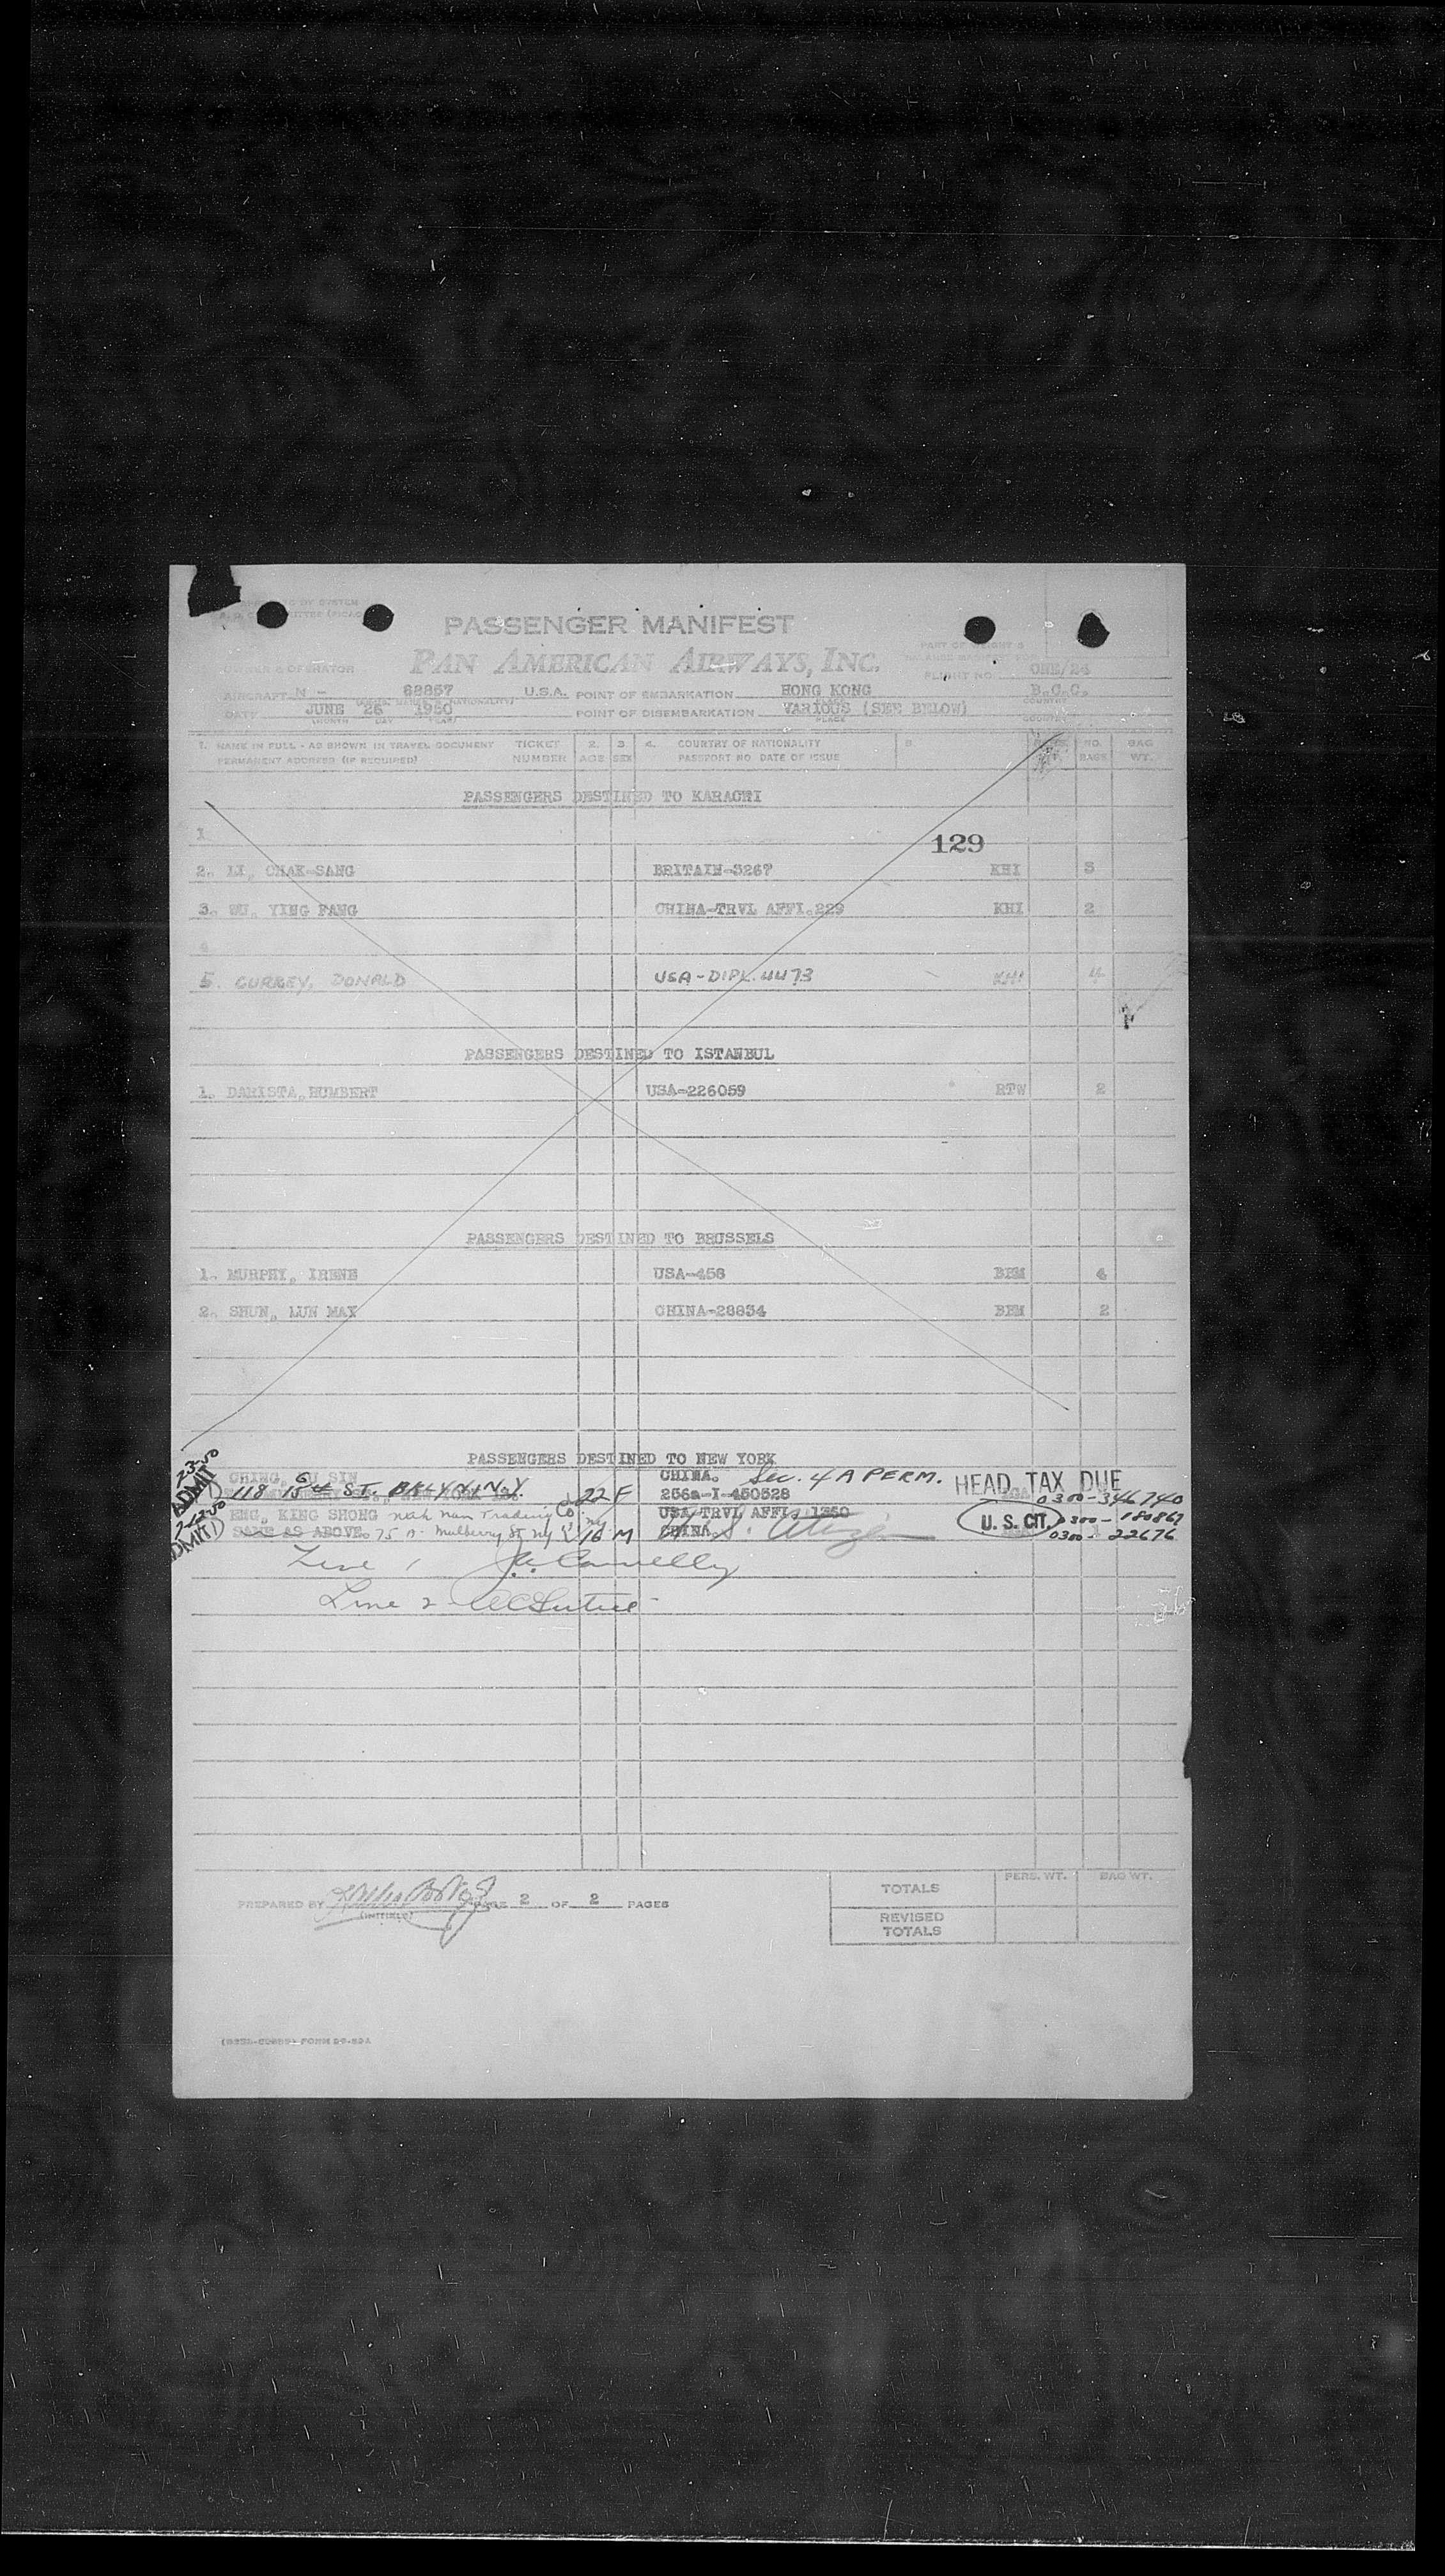 PASSENGER MANIFEST
PAN AMERICAN AIRWAYS, INC.
PART OF WEIGHT &
OWNER & OPERATOR FLIGHT NO. ONE/24
AIRCRAFT N - 88857 U.S.A. POINT OF EMBARKATION HONG KONG B.C.C.
DATE JUNE 26 1950 POINT OF DISEMBARKATION VARIOUS (SEE BELOW)
(MONTH DAY YEAR) PLACE COUNTRY
1. NAME IN FULL - AS SHOWN IN TRAVEL DOCUMENT TICKET 2. 3. 4. COUNTRY OF NATIONALITY 5. NO. BAG
PERMANENT ADDRESS (IF REQUIRED) NUMBER AGE SEX PASSPORT NO. DATE OF ISSUE BAGS WT.
PASSENGERS DESTINED TO KARACHI
1.
129
2. LI, CHAK-SANG BRITAIN-3267 KHI 3
3. WU, YING FANG CHINA-TRVL AFFI.229 KHI 2
4.
5. CURREY, DONALD USA-DIPL.4473 KHI 4
PASSENGERS DESTINED TO ISTANBUL
1. DARISTA, HUMBERT USA-226059 RTW 2
PASSENGERS DESTINED TO BRUSSELS
1. MURPHY, IRENE USA-458 BEM 4
2. SHUN, LUN MAY CHINA-28834 BEM 2
PASSENGERS DESTINED TO NEW YORK
CHING, SU SIN CHINA. Sec. 4 A PERM. HEAD TAX DUE
ADMIT 118 15th ST. BKLYN, N.Y. 22 F 256a-I-450528 0300-346740
ENG, KING SHONG Trading Co USA-TRVL AFFI. 1350 U.S. CIT. 0300-180867
SAME AS ABOVE. 75 Mulberry St NY 16 M CHINA. U.S. Citizen 0300-22676
Line 1 Connelly
Line 2
PREPARED BY PAGE 2 OF 2 PAGES
(INITIALS)
PERS. WT. BAG WT.
TOTALS
REVISED
TOTALS